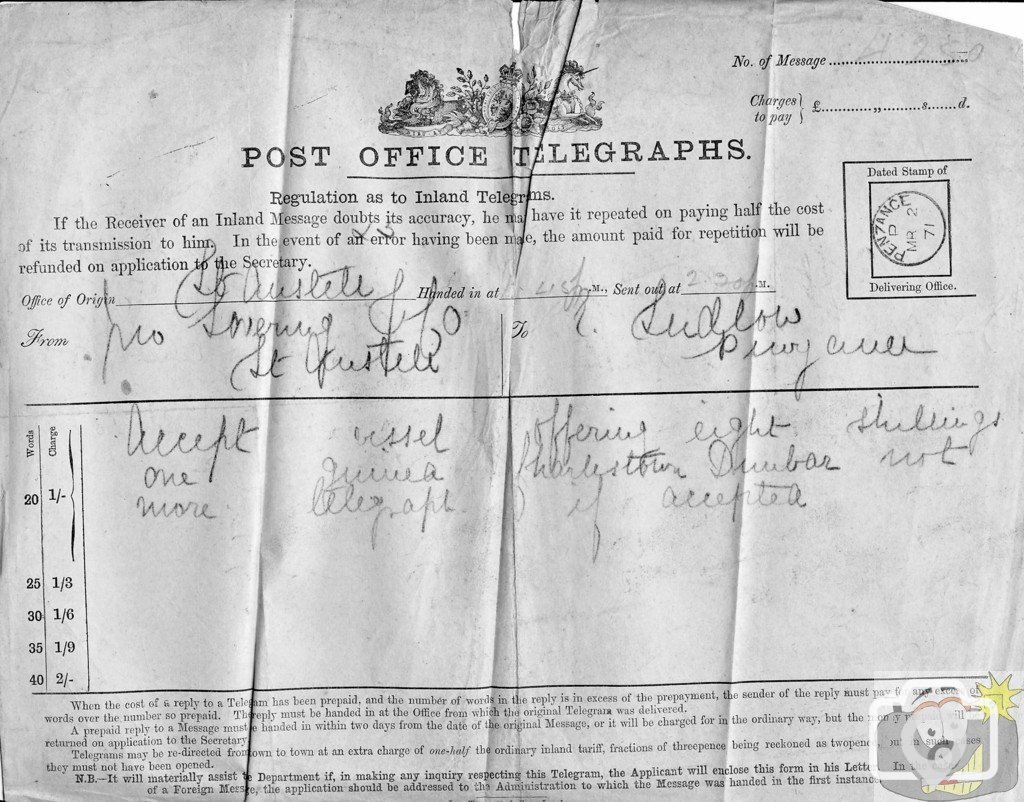 No. of Message
Charges to pay } £ ,, s. d.
POST OFFICE TELEGRAPHS.
Regulation as to Inland Telegrams.
Dated Stamp of
PENZANCE
MR 2
71
Delivering Office.
If the Receiver of an Inland Message doubts its accuracy, he may have it repeated on paying half the cost
of its transmission to him. In the event of an error having been made, the amount paid for repetition will be
refunded on application to the Secretary.
Office of Origin St Austell Handed in at .M., Sent out at .M.
From Lovering To Ludlow
St Austell Penzance
Words Charge
Accept vessel offering eight shillings
one guinea Charlestown Dunbar not
20 1/-
more telegraph if accepted
25 1/3
30 1/6
35 1/9
40 2/-
When the cost of a reply to a Telegram has been prepaid, and the number of words in the reply is in excess of the prepayment, the sender of the reply must pay for any excess of
words over the number so prepaid. The reply must be handed in at the Office from which the original Telegram was delivered.
A prepaid reply to a Message must be handed in within two days from the date of the original Message, or it will be charged for in the ordinary way, but the
returned on application to the Secretary.
Telegrams may be re-directed from town to town at an extra charge of one-half the ordinary inland tariff, fractions of threepence being reckoned as twopence, but in such
they must not have been opened.
N.B.—It will materially assist Department if, in making any inquiry respecting this Telegram, the Applicant will enclose this form in his Letter. In
of a Foreign Message, the application should be addressed to the Administration to which the Message was handed in the first instance.